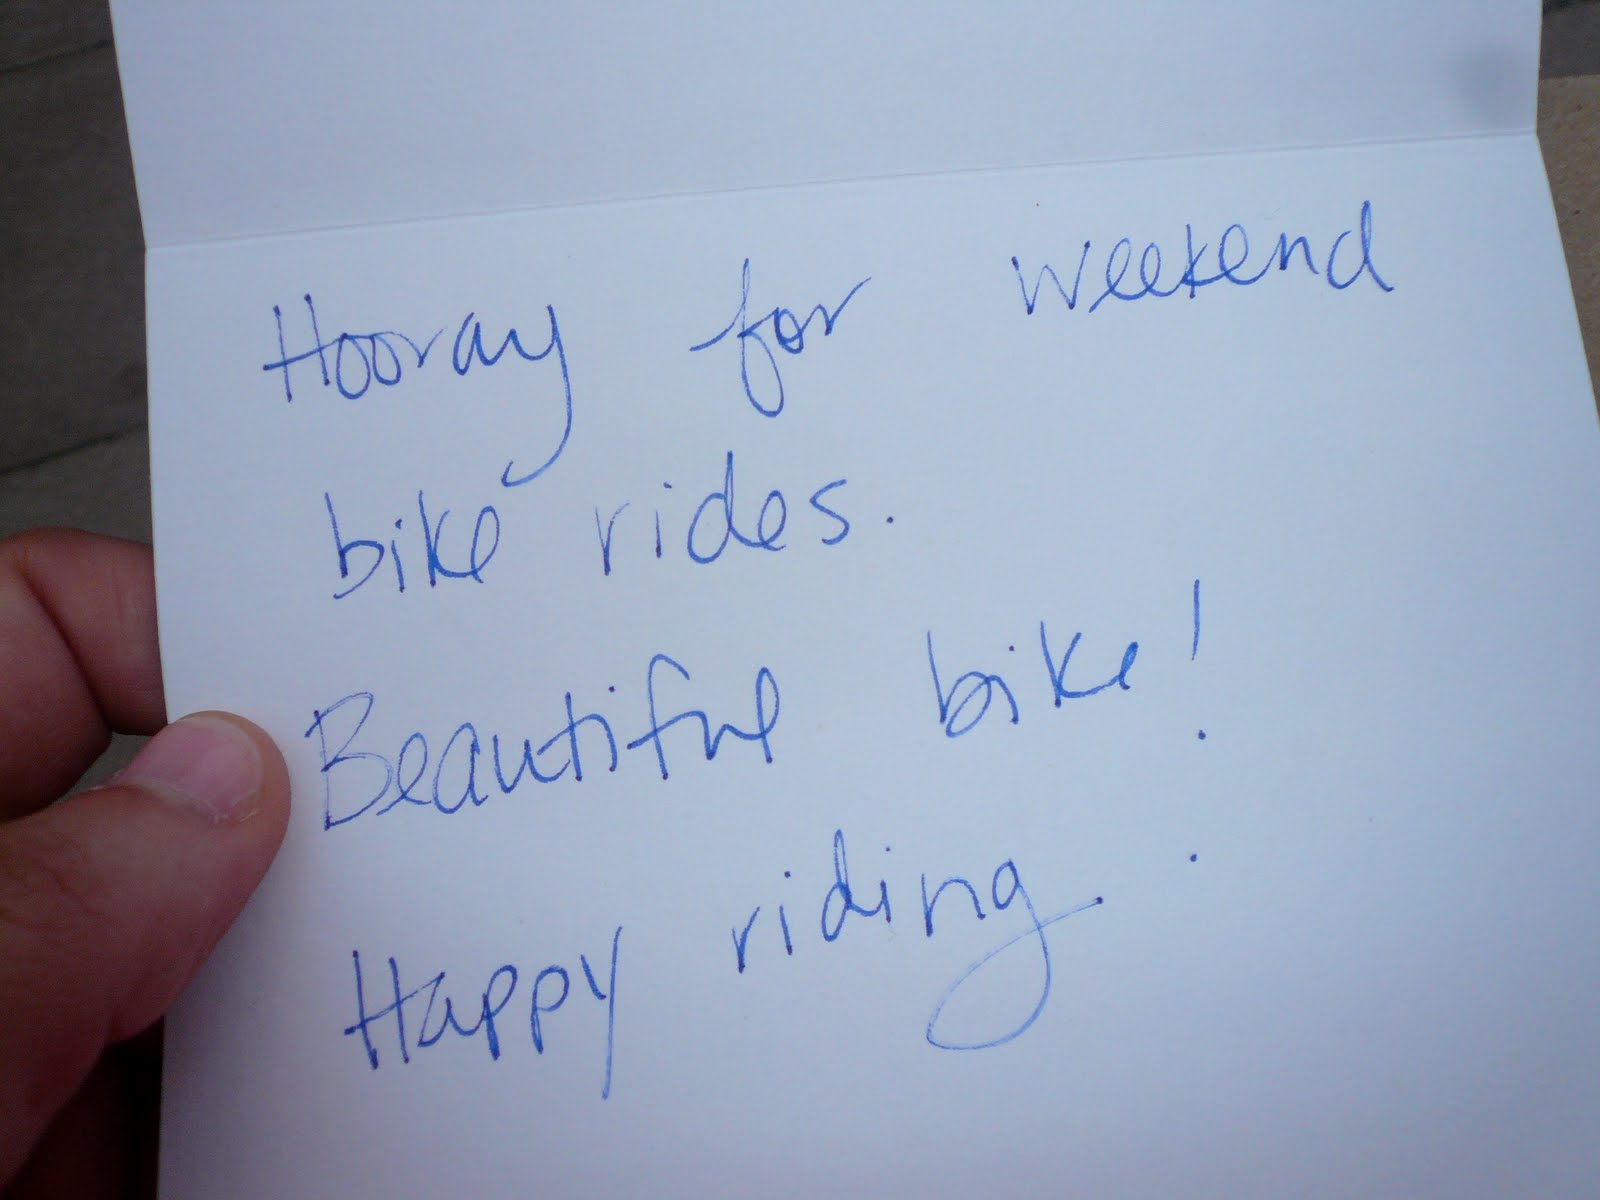 Hooray for weekend
bike rides.
Beautiful bike!
Happy riding.